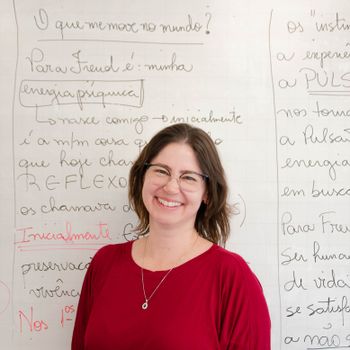 O que me move no mundo?
Para Freud é: minha
energia psíquica
↳ nasce comigo → inicialmente
é a mm coisa
que hoje
REFLEXO
os chamava
Inicialmente.
preservaç
vivênci
Nos 1ºs
os "instin
a experiê
a PULS
nos torna
a Pulsã
energia
em busca
Para Freu
Ser human
de vida
se satisf
a não s